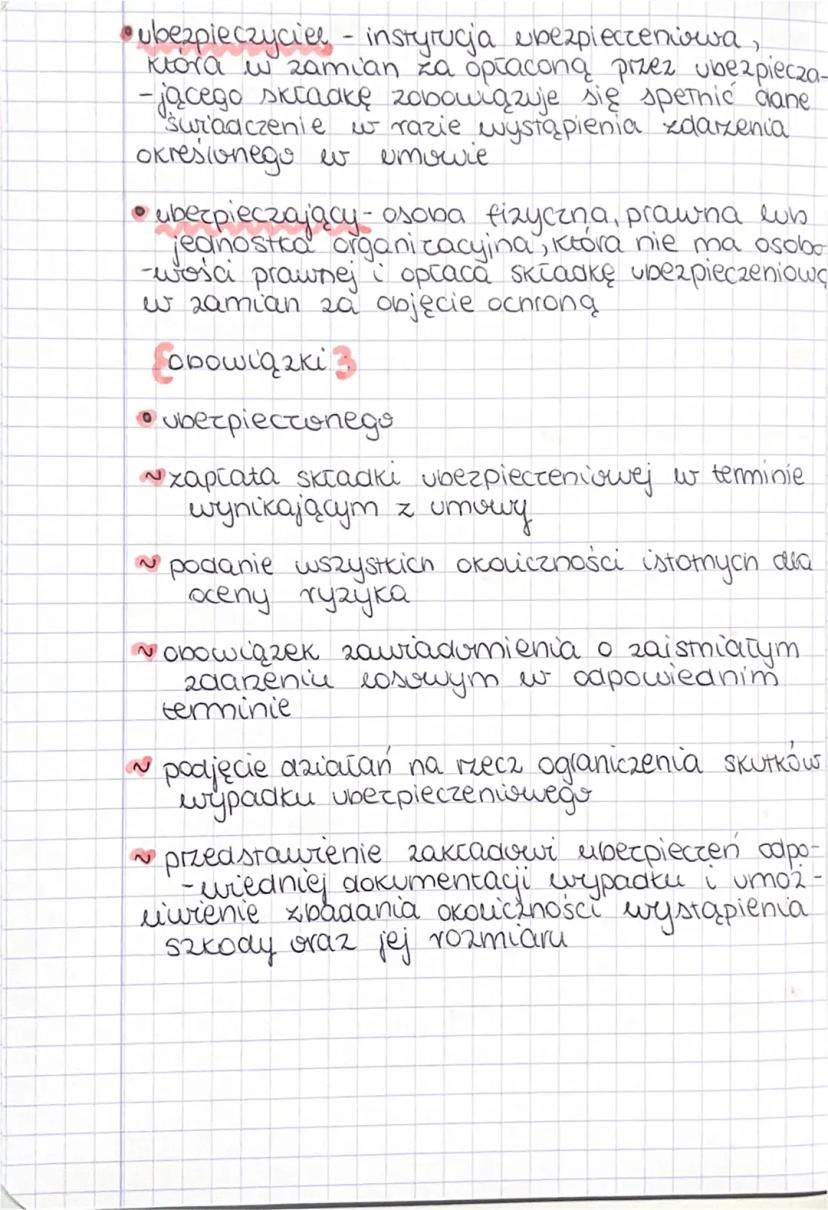 • ubezpieczyciel - instytucja ubezpieczeniowa,
która w zamian za opłaconą przez ubezpiecza-
-jącego składkę zobowiązuje się spełnić dane
świadczenie w razie wystąpienia zdarzenia
określonego w umowie
• ubezpieczający - osoba fizyczna, prawna lub
jednostka organizacyjna, która nie ma osobo
-wości prawnej i opłaca składkę ubezpieczeniową
w zamian za objęcie ochroną
{obowiązki}
• ubezpieczonego
~ zapłata składki ubezpieczeniowej w terminie
wynikającym z umowy
~ podanie wszystkich okoliczności istotnych dla
oceny ryzyka
~ obowiązek zawiadomienia o zaistniałym
zdarzeniu losowym w odpowiednim
terminie
~ podjęcie działań na rzecz ograniczenia skutków
wypadku ubezpieczeniowego
~ przedstawienie zakładowi ubezpieczeń odpo-
-wiedniej dokumentacji wypadku i umoż-
liwienie zbadania okoliczności wystąpienia
szkody oraz jej rozmiaru